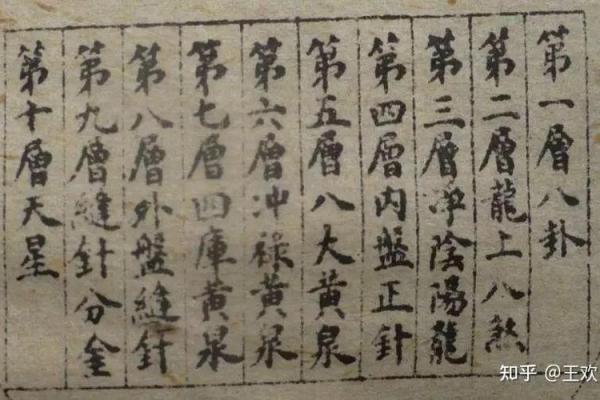 第一層八卦
第二層龍上八煞
第三層淨陰陽龍
第四層內盤正針
第五層八大黃泉
第六層冲祿黃泉
第七層四庫黃泉
第八層外盤縫針
第九層縫針分金
第十層天星
知乎 @王欢